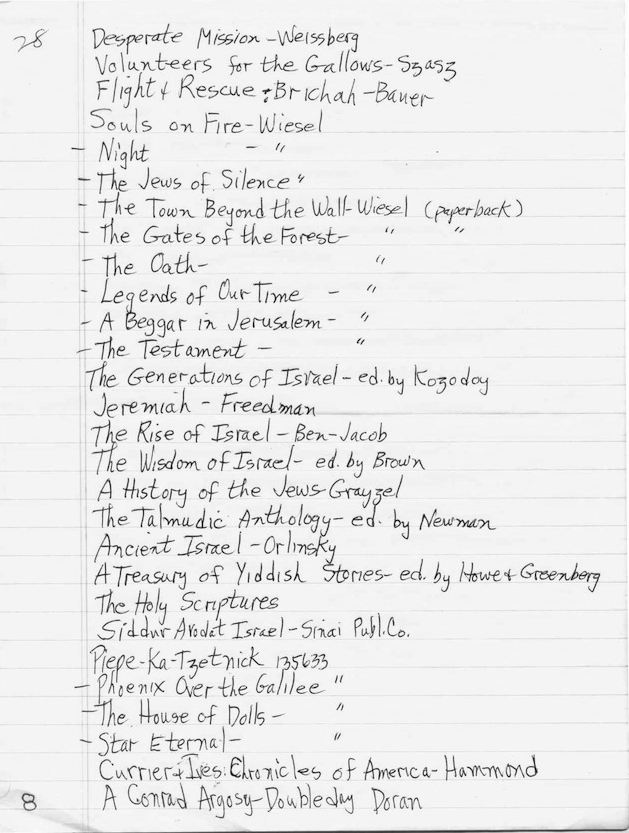 28
Desperate Mission - Weissberg
Volunteers for the Gallows - Szasz
Flight & Rescue: Brichah - Bauer
Souls on Fire - Wiesel
- Night - "
- The Jews of Silence "
- The Town Beyond the Wall - Wiesel (paperback)
- The Gates of the Forest - " "
- The Oath - "
- Legends of Our Time - "
- A Beggar in Jerusalem - "
- The Testament - "
The Generations of Israel - ed. by Kozodoy
Jeremiah - Freedman
The Rise of Israel - Ben-Jacob
The Wisdom of Israel - ed. by Brown
A History of the Jews - Grayzel
The Talmudic Anthology - ed. by Newman
Ancient Israel - Orlinsky
A Treasury of Yiddish Stories - ed. by Howe & Greenberg
The Holy Scriptures
Siddur Avodat Israel - Sinai Publ. Co.
Piepe - Ka-Tzetnick 135633
- Phoenix Over the Galilee "
- The House of Dolls - "
- Star Eternal - "
Currier & Ives: Chronicles of America - Hammond
A Conrad Argosy - Doubleday Doran
8